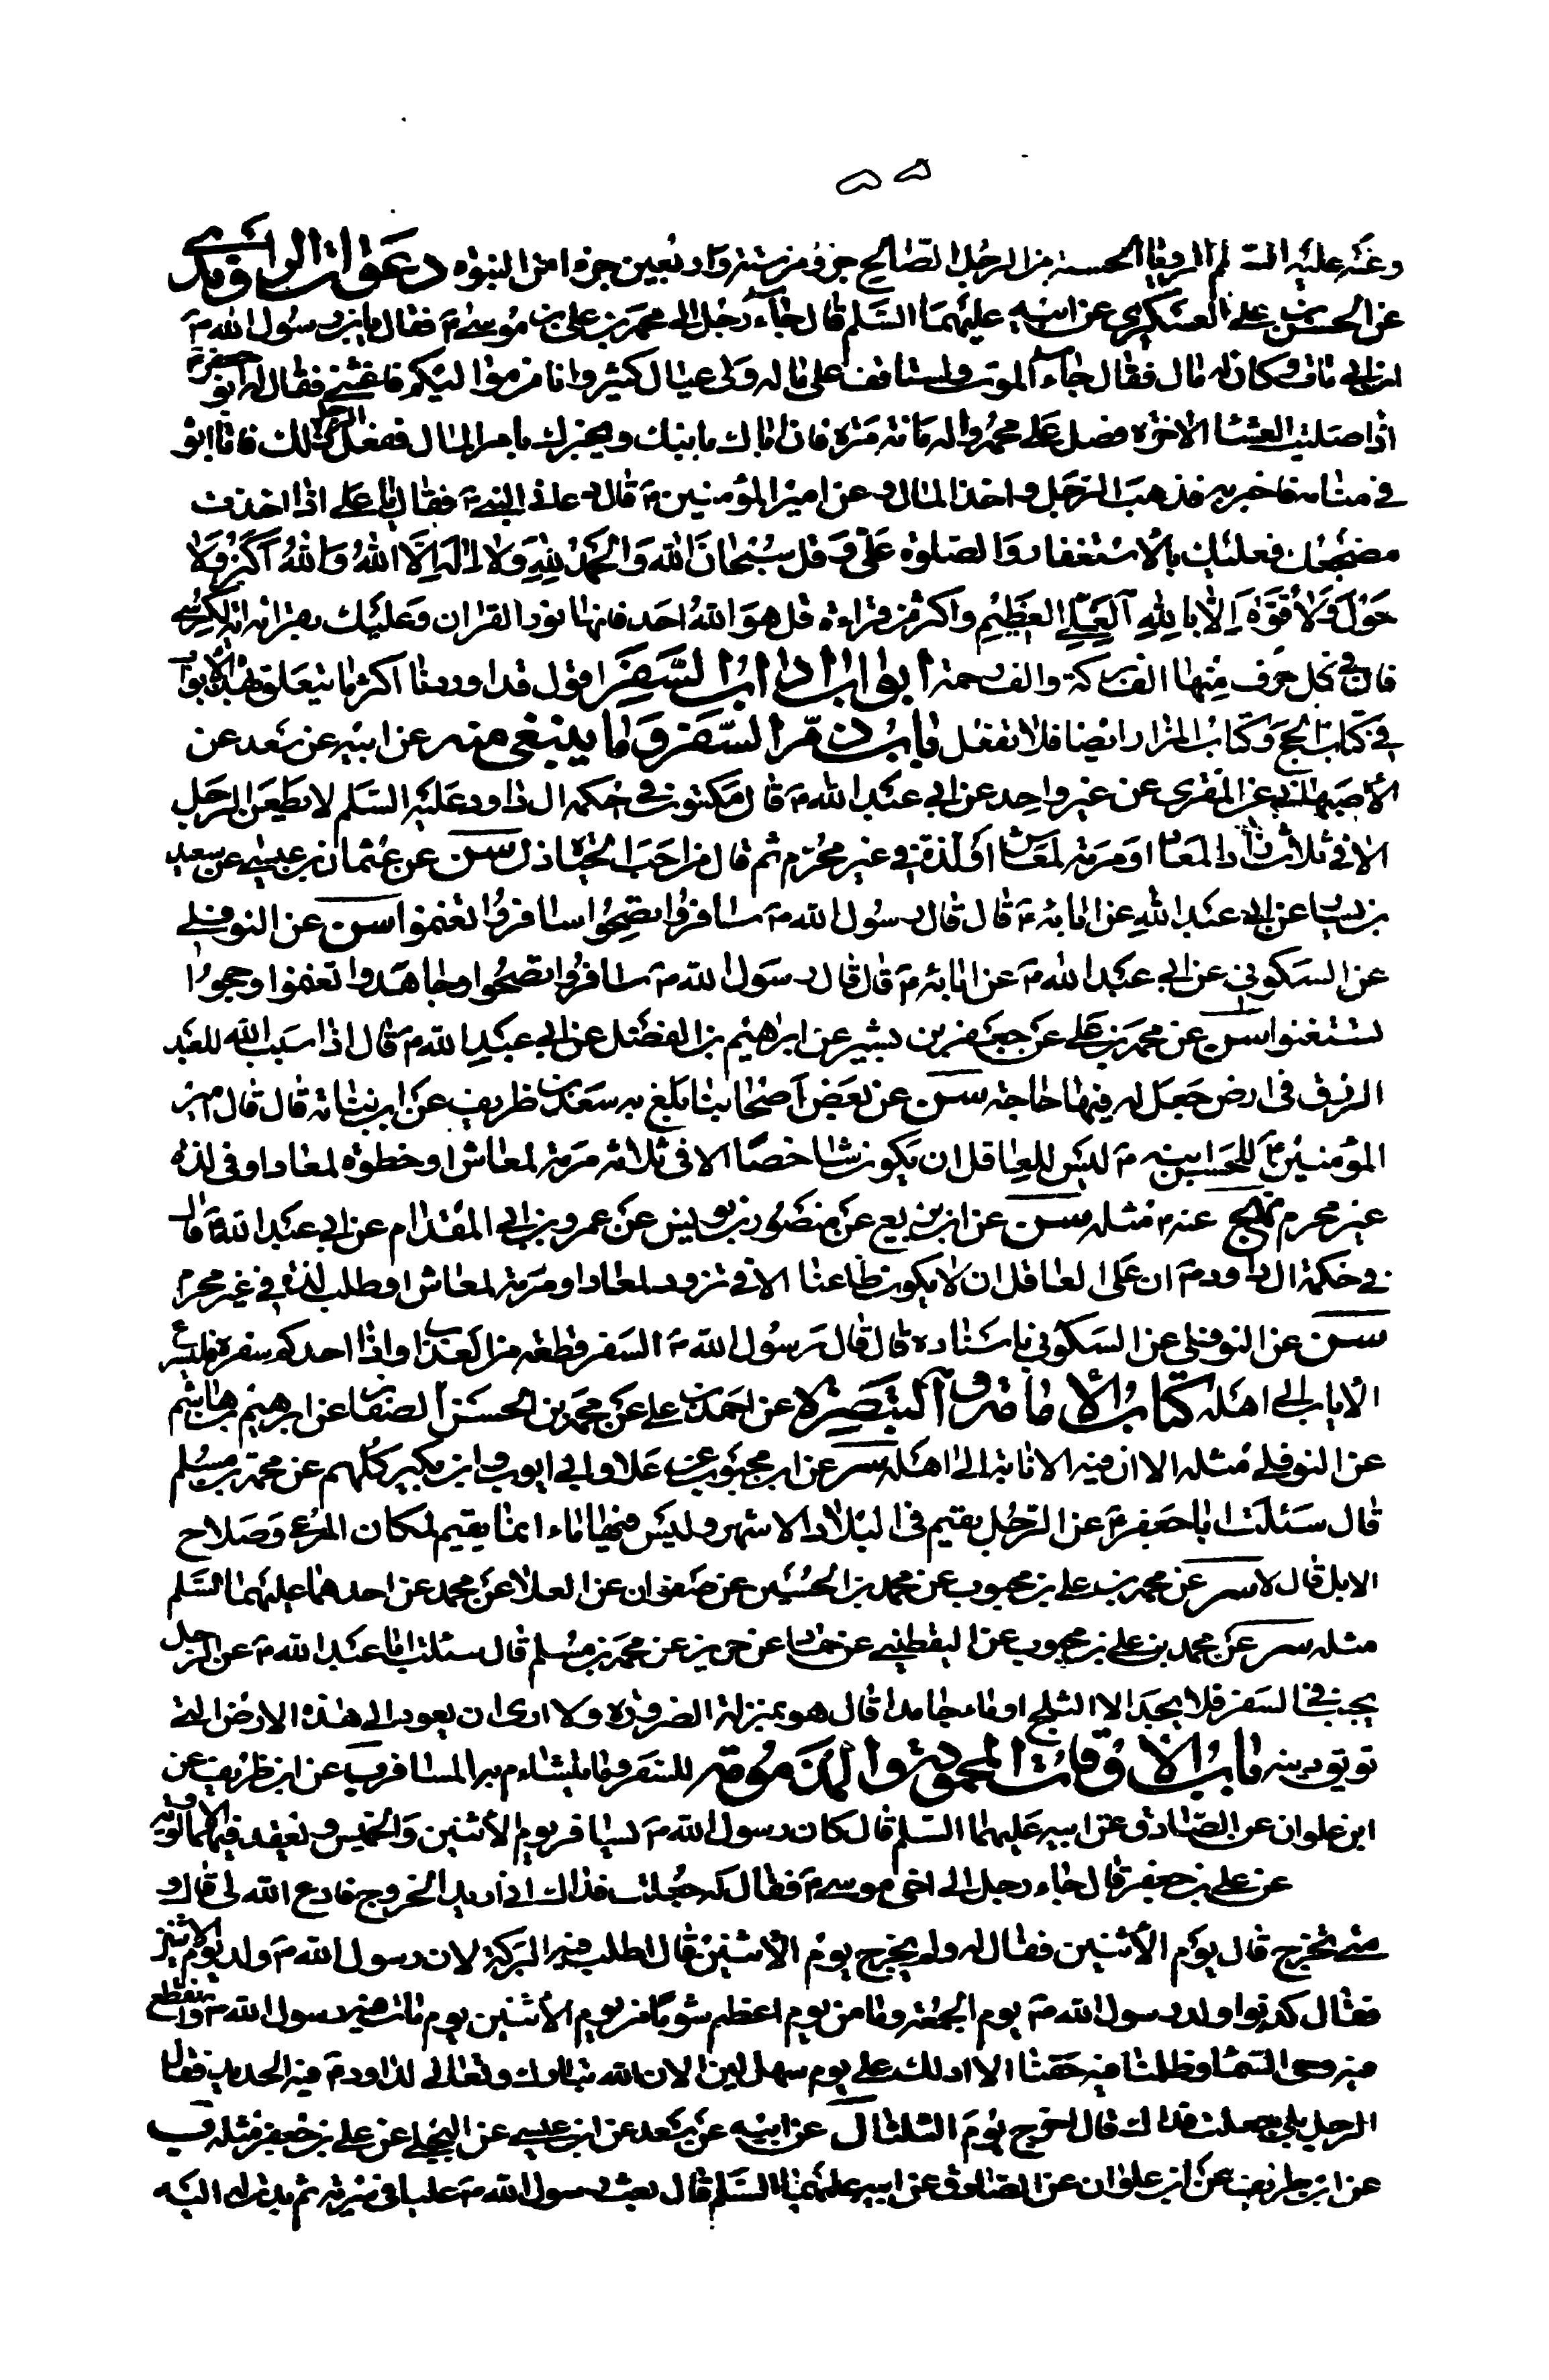 ٥٥
وعنه عليه السلم الرويا الحسنة من الرجل الصالح جزؤ من ستة واربعين جزءا من النبوة دعوات الراوندى
عن الحسن بن على العسكرى عن ابيه عليهما السلم قال جاء رجل الى محمد بن على بن موسى ع فقال يابن رسول الله ص
ان ابى مات وكان له مال ففاجاءه الموت ولست اقف على ماله ولى عيال كثير وانا من مواليكم فاغثنى فقال له ابو جعفر ع
اذا صليت العشا الاخرة فصل على محمد واله مائة مرة فان اباك ياتيك ويخبرك بامر المال ففعل الرجل ذلك فاتاه ابوه
فى منامه فاخبره فذهب الرجل واخذ المال وعن امير المؤمنين ع قال دعانى النبى ص فقال يا على اذا اخذت
مضجعك فعليك بالاستغفار والصلوة على وقل سبحان الله والحمد لله ولا اله الا الله والله اكبر ولا
حول ولا قوة الا بالله العلى العظيم واكثر من قراءة قل هو الله احد فانها نور القران وعليك بقراءة اية الكرسى
فان فى كل حرف منها الف بركة والف رحمة ابواب اداب السفر اقول قد اوردنا اكثر ما يتعلق بهذه الابواب
فى كتاب الحج وكتاب المزار ايضا فلا تغفل باب ذم السفر وما ينبغى منه عن ابيه عن سعد عن
الاصبهانى عن المنقرى عن غير واحد عن ابى عبد الله ع قال مكتوب فى حكمة ال داود عليه السلم لا يظعن الرجل
الا فى ثلاث زاد لمعاد او مرمة لمعاش او لذة فى غير محرم ثم قال من احب الحيوة ذل سن عن عثمان بن عيسى عن سعيد
بن يسار عن ابى عبد الله عن ابائه ع قال قال رسول الله ص سافروا تصحوا سافروا تغنموا سن عن النوفلى
عن السكونى عن ابى عبد الله ع عن ابائه ع قال قال رسول الله ص سافروا تصحوا وجاهدوا تغنموا وحجوا
تستغنوا سن عن محمد بن على عن جعفر بن بشير عن ابراهيم بن الفضل عن ابى عبد الله ع قال اذا سبب الله للعبد
الرزق فى ارض جعل له فيها حاجة سن عن بعض اصحابنا بلغ به سعد بن ظريف عن ابن نباتة قال قال امير
المؤمنين للحسن ابنه ع ليس للعاقل ان يكون شاخصا الا فى ثلاثة مرمة لمعاش او خطوة لمعاد او فى لذة
غير محرم نهج عنه ع مثله سن عن ابن بزيع عن منصور بن يونس عن عمرو بن ابى المقدام عن ابى عبد الله ع قال
فى حكمة ال داود ع ان على العاقل ان لا يكون ظاعنا الا فى تزود لمعاد او مرمة لمعاش او طلب لذة فى غير محرم
سن عن النوفلى عن السكونى باسناده قال قال رسول الله ص السفر قطعة من العذاب واذا احدكم سفره فليسرع
الاياب الى اهله كتاب الامامة والتبصرة عن احمد بن على عن محمد بن الحسن الصفار عن ابرهيم بن هاشم
عن النوفلى مثله الا ان فيه الانابة الى اهله سر عن ابن محبوب عن علاو ابى ايوب وابن بكير كلهم عن محمد بن مسلم
قال سئلت ابا جعفر ع عن الرجل يقيم فى البلاد الاشهر وليس فيها ماء انما يقيم لمكان المرعى وصلاح
الابل قال لا سر عن محمد بن على بن محبوب عن محمد بن الحسين عن صفوان عن العلا عن محمد عن احدهما عليهما السلم
مثله سر عن محمد بن على بن محبوب عن اليقطينى عن حماد عن حريز عن محمد بن مسلم قال سئلت ابا عبد الله ع عن الرجل
يجنب فى السفر فلا يجد الا الثلج او ماء جامدا قال هو بمنزلة الضرورة ولا ارى ان يعود الى هذه الارض التى
توبق دينه باب الاوقات المحمودة والمذمومة للسفر وما يتشاءم به المسافر ب عن ابن ظريف عن
ابن علوان عن الصادق عن ابيه عليهما السلم قال كان رسول الله ص يسافر يوم الاثنين والخميس ويعقد فيهما الالوية
عن على بن جعفر قال جاء رجل الى اخى موسى ع فقال له جعلت فداك انى اريد الخروج فادع الله لى قال و
متى تخرج قال يوم الاثنين فقال له ولم تخرج يوم الاثنين قال اطلب فيه البركة لان رسول الله ص ولد يوم الاثنين
فقال كذبوا ولد رسول الله ص يوم الجمعة وما من يوم اعظم شوما من يوم الاثنين يوم مات فيه رسول الله ص وانقطع
فيه وحى السما وظلمنا فيه حقنا الا ادلك على يوم سهل لين الان الله تبارك وتعالى لداود ع فيه الحديد فقال
الرجل بلى جعلت فداك قال اخرج يوم الثلثا ل عن ابيه عن سعد عن ابن عيسى عن البجلى عن على بن جعفر مثله ب
عن ابن ظريف عن ابن علوان عن الصادق عن ابيه عليهما السلم قال بعث رسول الله ص عليا فى سرية ثم بدرت اليه